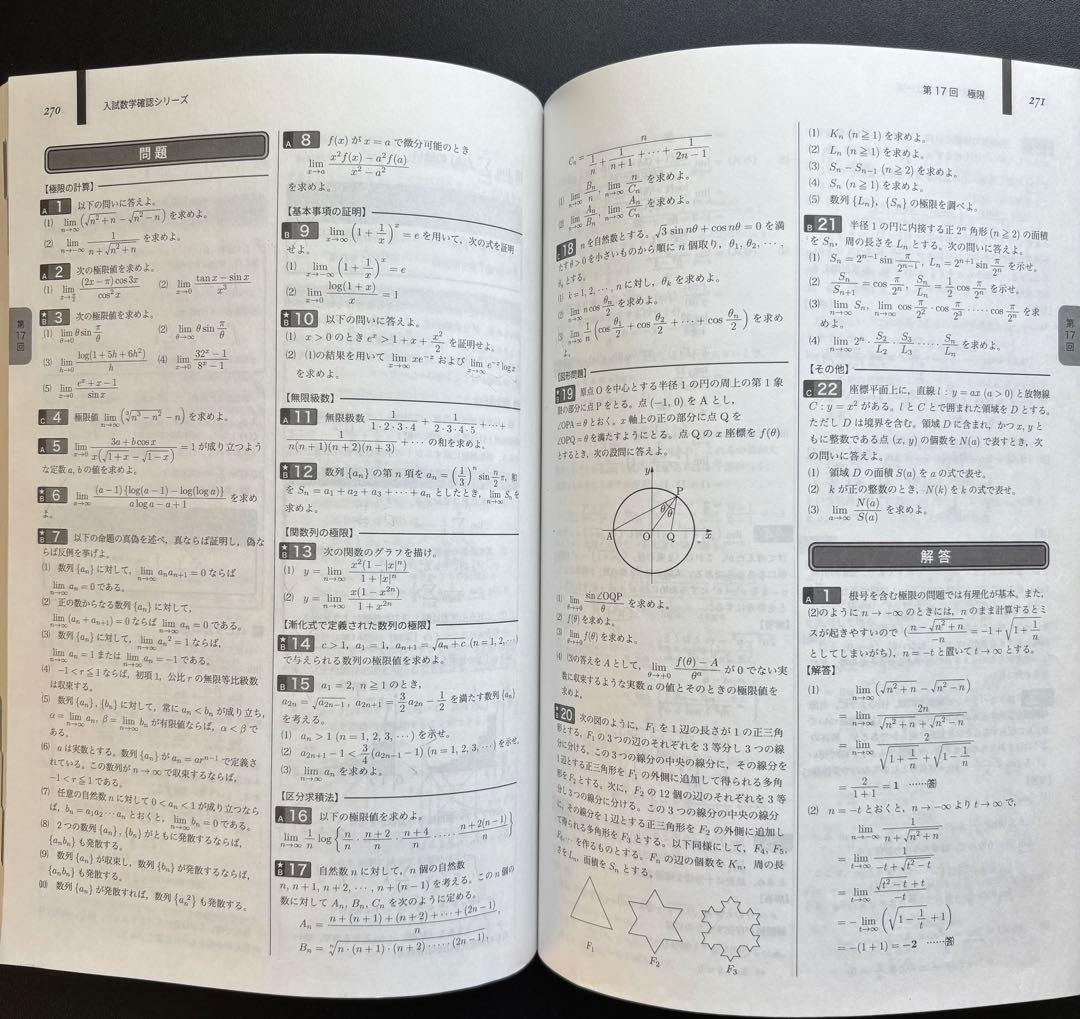 270
入試数学確認シリーズ
問題
【極限の計算】
A 1 以下の問いに答えよ。
(1) lim_{n→∞}(√(n²+n)−√(n²−n)) を求めよ。
(2) lim_{n→−∞} 1/(n+√(n²+n)) を求めよ。
A 2 次の極限値を求めよ。
(1) lim_{x→π/2} (2x−π)cos3x/cos²x (2) lim_{x→0} (tan x−sin x)/x³
★B 3 次の極限値を求めよ。
(1) lim_{θ→0} θ sin π/θ (2) lim_{θ→∞} θ sin π/θ
(3) lim_{h→0} log(1+5h+6h²)/h (4) lim_{x→0} (32ˣ−1)/(8ˣ−1)
(5) lim_{x→0} (eˣ+x−1)/sin x
C 4 極限値 lim_{n→∞}(∛(n³−n²)−n) を求めよ。
A 5 lim_{x→0} (3a+b cos x)/(x(√(1+x)−√(1−x)))=1 が成り立つよう
な定数 a, b の値を求めよ。
★B 6 lim_{a→∞} (a−1){log(a−1)−log(log a)}/(a log a−a+1) を求め
よ。
★B 7 以下の命題の真偽を述べ，真ならば証明し，偽な
らば反例を挙げよ。
(1) 数列 {aₙ} に対して，lim_{n→∞} aₙaₙ₊₁=0 ならば
lim_{n→∞} aₙ=0 である。
(2) 正の数からなる数列 {aₙ} に対して，
lim_{n→∞}(aₙ+aₙ₊₁)=0 ならば lim_{n→∞} aₙ=0 である。
(3) 数列 {aₙ} に対して，lim_{n→∞} aₙ²=1 ならば，
lim_{n→∞} aₙ=1 または lim_{n→∞} aₙ=−1 である。
(4) −1<r≦1 ならば，初項 1，公比 r の無限等比級数
は収束する。
(5) 数列 {aₙ}, {bₙ} に対して，常に aₙ<bₙ が成り立ち，
α=lim_{n→∞} aₙ, β=lim_{n→∞} bₙ が有限値ならば，α<β で
ある。
(6) a は実数とする。数列 {aₙ} が aₙ=arⁿ⁻¹ で定義さ
れている。この数列が n→∞ で収束するならば，
−1<r≦1 である。
(7) 任意の自然数 n に対して 0<aₙ<1 が成り立つなら
ば，bₙ=a₁a₂⋯aₙ とおくと，lim_{n→∞} bₙ=0 である。
(8) 2つの数列 {aₙ}, {bₙ} がともに発散するならば，
{aₙbₙ} も発散する。
(9) 数列 {aₙ} が収束し，数列 {bₙ} が発散するならば，
{aₙbₙ} も発散する。
(10) 数列 {aₙ} が発散すれば，数列 {aₙ²} も発散する。
第17回
A 8 f(x) が x=a で微分可能のとき
lim_{x→a} (x²f(x)−a²f(a))/(x²−a²)
を求めよ。
【基本事項の証明】
B 9 lim_{x→∞}(1+1/x)ˣ=e を用いて，次の式を証明
せよ。
(1) lim_{x→−∞}(1+1/x)ˣ=e
(2) lim_{x→0} log(1+x)/x=1
★B 10 以下の問いに答えよ。
(1) x>0 のとき eˣ>1+x+x²/2 を証明せよ。
(2) (1)の結果を用いて lim_{x→∞} xe⁻ˣ および lim_{x→∞} e⁻ˣ log x
を求めよ。
【無限級数】
A 11 無限級数 1/(1·2·3·4)+1/(2·3·4·5)+⋯+
1/(n(n+1)(n+2)(n+3))+⋯ の和を求めよ。
★B 12 数列 {aₙ} の第 n 項を aₙ=(1/3)ⁿ sin (n/2)π，和
を Sₙ=a₁+a₂+a₃+⋯+aₙ としたとき，lim_{n→∞} Sₙ を
求めよ。
【関数列の極限】
★B 13 次の関数のグラフを描け。
(1) y=lim_{n→∞} x²(1−|x|ⁿ)/(1+|x|ⁿ)
(2) y=lim_{n→∞} x(1−x²ⁿ)/(1+x²ⁿ)
【漸化式で定義された数列の極限】
★B 14 c>1, a₁=1, aₙ₊₁=√(aₙ+c) (n=1,2,⋯)
で与えられる数列の極限値を求めよ。
★B 15 a₁=2, n≧1 のとき，
a₂ₙ=√a₂ₙ₋₁, a₂ₙ₊₁=3/2 a₂ₙ−1/2 を満たす数列 {aₙ}
を考える。
(1) aₙ>1 (n=1,2,3,⋯) を示せ。
(2) a₂ₙ₊₁−1<3/4(a₂ₙ₋₁−1) (n=1,2,3,⋯) を示せ。
(3) lim_{n→∞} aₙ を求めよ。
【区分求積法】
A 16 以下の極限値を求めよ。
lim_{n→∞} 1/n log{n/n·(n+2)/n·(n+4)/n·⋯⋯·(n+2(n−1))/n}
★B 17 自然数 n に対して，n 個の自然数
n, n+1, n+2, ⋯, n+(n−1) を考える。この n 個の
数に対して Aₙ, Bₙ, Cₙ を次のように定める。
Aₙ=(n+(n+1)+(n+2)+⋯+(2n−1))/n
Bₙ=ⁿ√(n·(n+1)·(n+2)·⋯⋯·(2n−1)),
第17回 極限
271
Cₙ=n/(1/n+1/(n+1)+⋯+1/(2n−1))
(1) lim_{n→∞} Bₙ/n, lim_{n→∞} n/Cₙ を求めよ。
(2) lim_{n→∞} Aₙ/Bₙ, lim_{n→∞} Aₙ/Cₙ を求めよ。
C 18 n を自然数とする。√3 sin nθ+cos nθ=0 を満
たす θ>0 を小さいものから順に n 個取り，θ₁, θ₂, ⋯,
θₙ とする。
(1) k=1,2,⋯,n に対し，θₖ を求めよ。
(2) lim_{n→∞} n cos θₙ/2 を求めよ。
(3) lim_{n→∞} 1/n(cos θ₁/2+cos θ₂/2+⋯+cos θₙ/2) を求め
よ。
【図形問題】
★B 19 原点 O を中心とする半径 1 の円の周上の第 1 象
限の部分に点 P をとる。点 (−1, 0) を A とし，
∠OPA=θ とおく。x 軸上の正の部分に点 Q を
∠OPQ=θ を満たすようにとる。点 Q の x 座標を f(θ)
とするとき，次の設問に答えよ。
y
P
θ θ
A O Q x
(1) lim_{θ→+0} sin∠OQP/θ を求めよ。
(2) f(θ) を求めよ。
(3) lim_{θ→+0} f(θ) を求めよ。
(4) (3)の答えを A として，lim_{θ→+0} (f(θ)−A)/θᵃ が 0 でない実
数に収束するような実数 a の値とそのときの極限値を
求めよ。
★B 20 次の図のように，F₁ を 1 辺の長さが 1 の正三角
形とする。F₁ の 3 つの辺のそれぞれを 3 等分し 3 つの線
分に分ける。この 3 つの線分の中央の線分に，その線分を
1 辺とする正三角形を F₁ の外側に追加して得られる多角
形を F₂ とする。次に，F₂ の 12 個の辺のそれぞれを 3 等
分し 3 つの線分に分ける。この 3 つの線分の中央の線分
に，その線分を 1 辺とする正三角形を F₂ の外側に追加し
て得られる多角形を F₃ とする。以下同様にして，F₄, F₅,
F₆, ⋯ を作るものとする。Fₙ の辺の個数を Kₙ，周の長
さを Lₙ，面積を Sₙ とする。
F₁
F₂
F₃
(1) Kₙ (n≧1) を求めよ。
(2) Lₙ (n≧1) を求めよ。
(3) Sₙ−Sₙ₋₁ (n≧2) を求めよ。
(4) Sₙ (n≧1) を求めよ。
(5) 数列 {Lₙ}, {Sₙ} の極限を調べよ。
B 21 半径 1 の円に内接する正 2ⁿ 角形 (n≧2) の面積
を Sₙ，周の長さを Lₙ とする。次の問いに答えよ。
(1) Sₙ=2ⁿ⁻¹ sin π/2ⁿ⁻¹, Lₙ=2ⁿ⁺¹ sin π/2ⁿ を示せ。
(2) Sₙ/Sₙ₊₁=cos π/2ⁿ, Sₙ/Lₙ=1/2 cos π/2ⁿ を示せ。
(3) lim_{n→∞} Sₙ, lim_{n→∞} cos π/2²·cos π/2³·⋯⋯·cos π/2ⁿ を求
めよ。
(4) lim_{n→∞} 2ⁿ·S₂/L₂·S₃/L₃·⋯⋯·Sₙ/Lₙ を求めよ。
【その他】
C 22 座標平面上に，直線 l : y=ax (a>0) と放物線
C : y=x² がある。l と C とで囲まれた領域を D とする。
ただし D は境界を含む。領域 D に含まれ，かつ x, y と
もに整数である点 (x, y) の個数を N(a) で表すとき，次
の問いに答えよ。
(1) 領域 D の面積 S(a) を a の式で表せ。
(2) k が正の整数のとき，N(k) を k の式で表せ。
(3) lim_{a→∞} N(a)/S(a) を求めよ。
解答
A 1 根号を含む極限の問題では有理化が基本。また，
(2)のように n→−∞ のときには，n のまま計算するとミ
スが起きやすいので ((n−√(n²+n))/−n=−1+√(1+1/n)
としてしまいがち)，n=−t と置いて t→∞ とする。
【解答】
(1) lim_{n→∞}(√(n²+n)−√(n²−n))
=lim_{n→∞} 2n/(√(n²+n)+√(n²−n))
=lim_{n→∞} 2/(√(1+1/n)+√(1−1/n))
=2/(1+1)=1 ……答
(2) n=−t とおくと，n→−∞ より t→∞ で，
lim_{n→−∞} 1/(n+√(n²+n))
=lim_{t→∞} 1/(−t+√(t²−t))
=lim_{t→∞} (√(t²−t)+t)/−t
=−lim_{t→∞}(√(1−1/t)+1)
=−(1+1)=−2 ……答
第17回